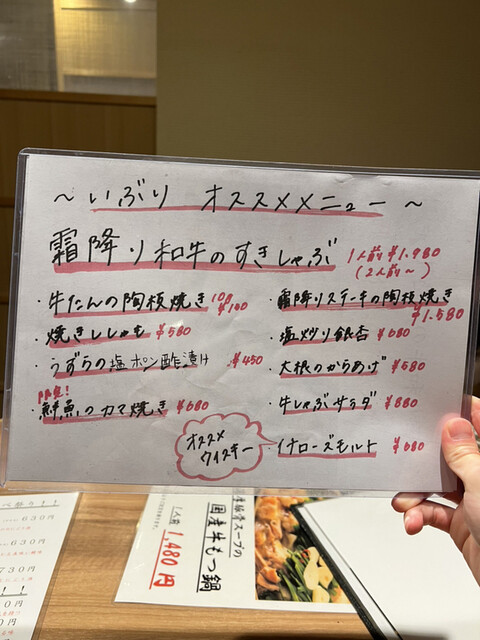 ～ いぶり オススメメニュー ～
霜降り和牛のすきしゃぶ 1人前 ¥1.980
(2人前〜)
・牛たんの陶板焼き
・焼きししゃも ¥580
・うずらの塩ポン酢漬け ¥450
限定!
・鮮魚のカマ焼き ¥680
・霜降りステーキの陶板焼き
¥1.580
・塩炒り銀杏 ¥680
・大根のからあげ ¥580
・牛しゃぶサラダ ¥880
オススメ
ウイスキー
・イチローズモルト ¥680
630円
630円
730円
豚骨スープの
国産牛もつ鍋
1人前
1,480円